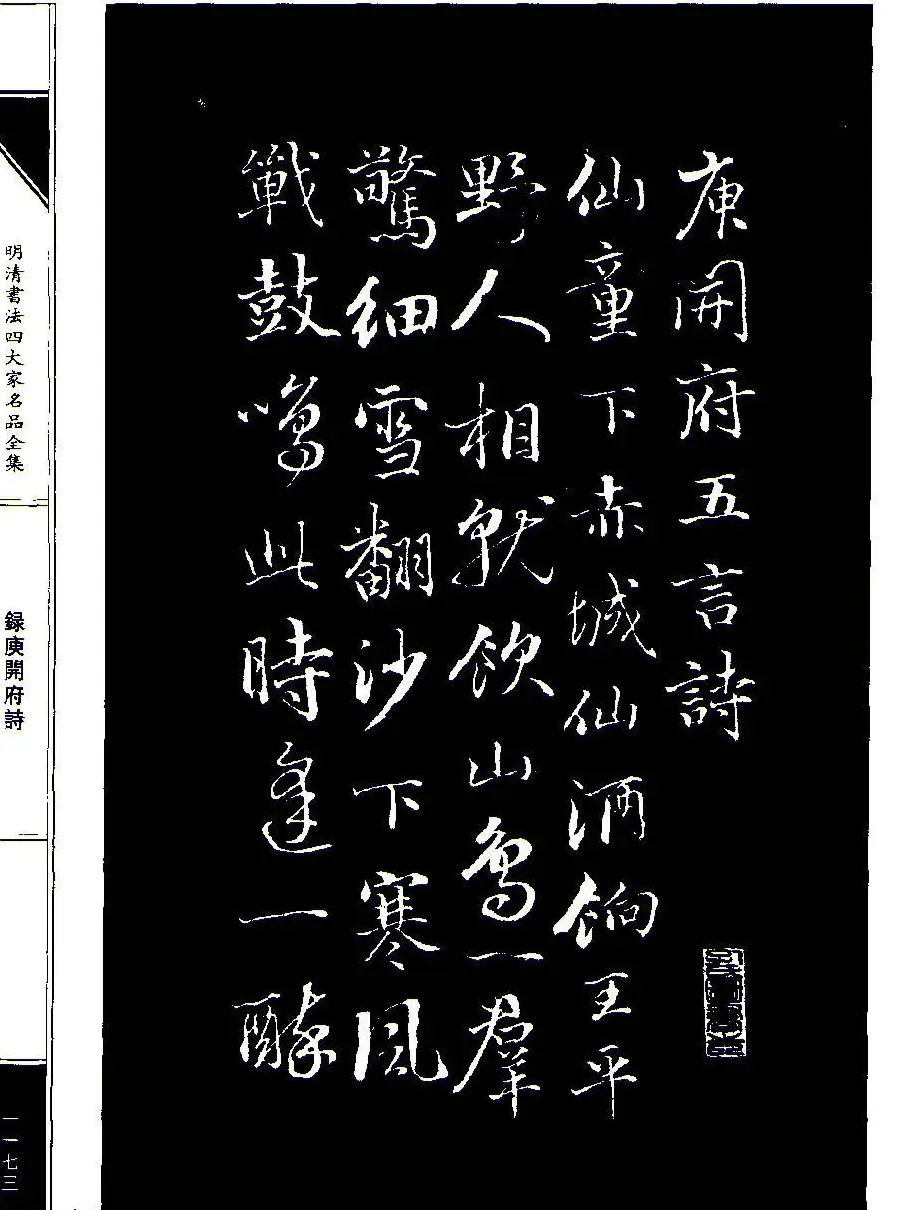 庾開府五言詩
仙童下赤城仙酒餉王平
野人相就飲山鳥一群
驚細雪翻沙下寒風
戰鼓鳴此時逢一醉
明清書法四大家名品全集
録庾開府詩
一一七三